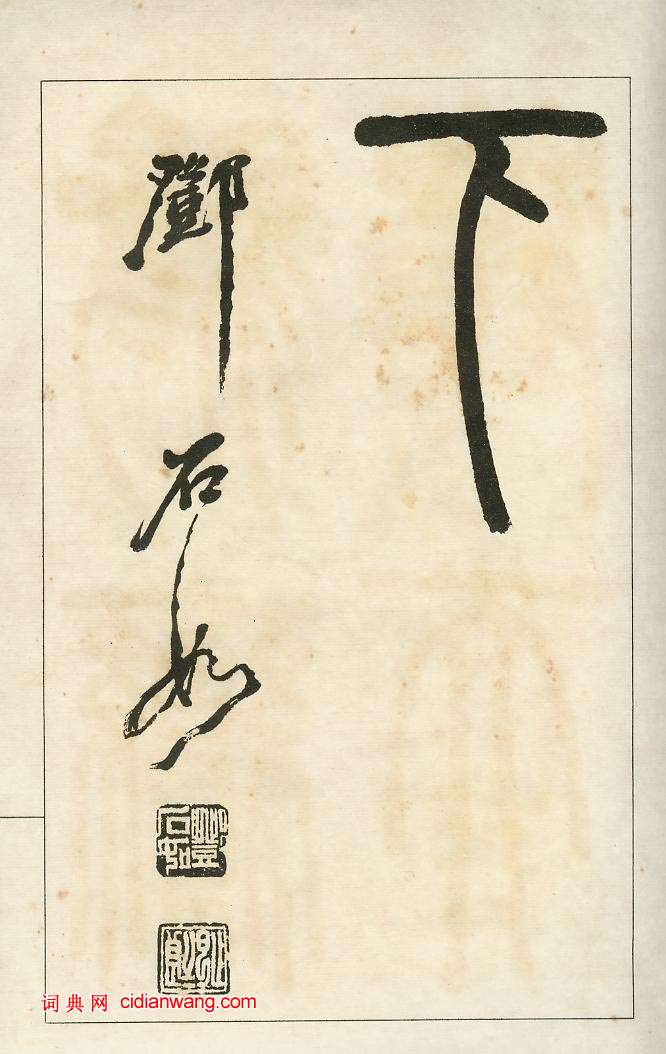 下
鄧石如
鄧石如
词典网 cidianwang.com